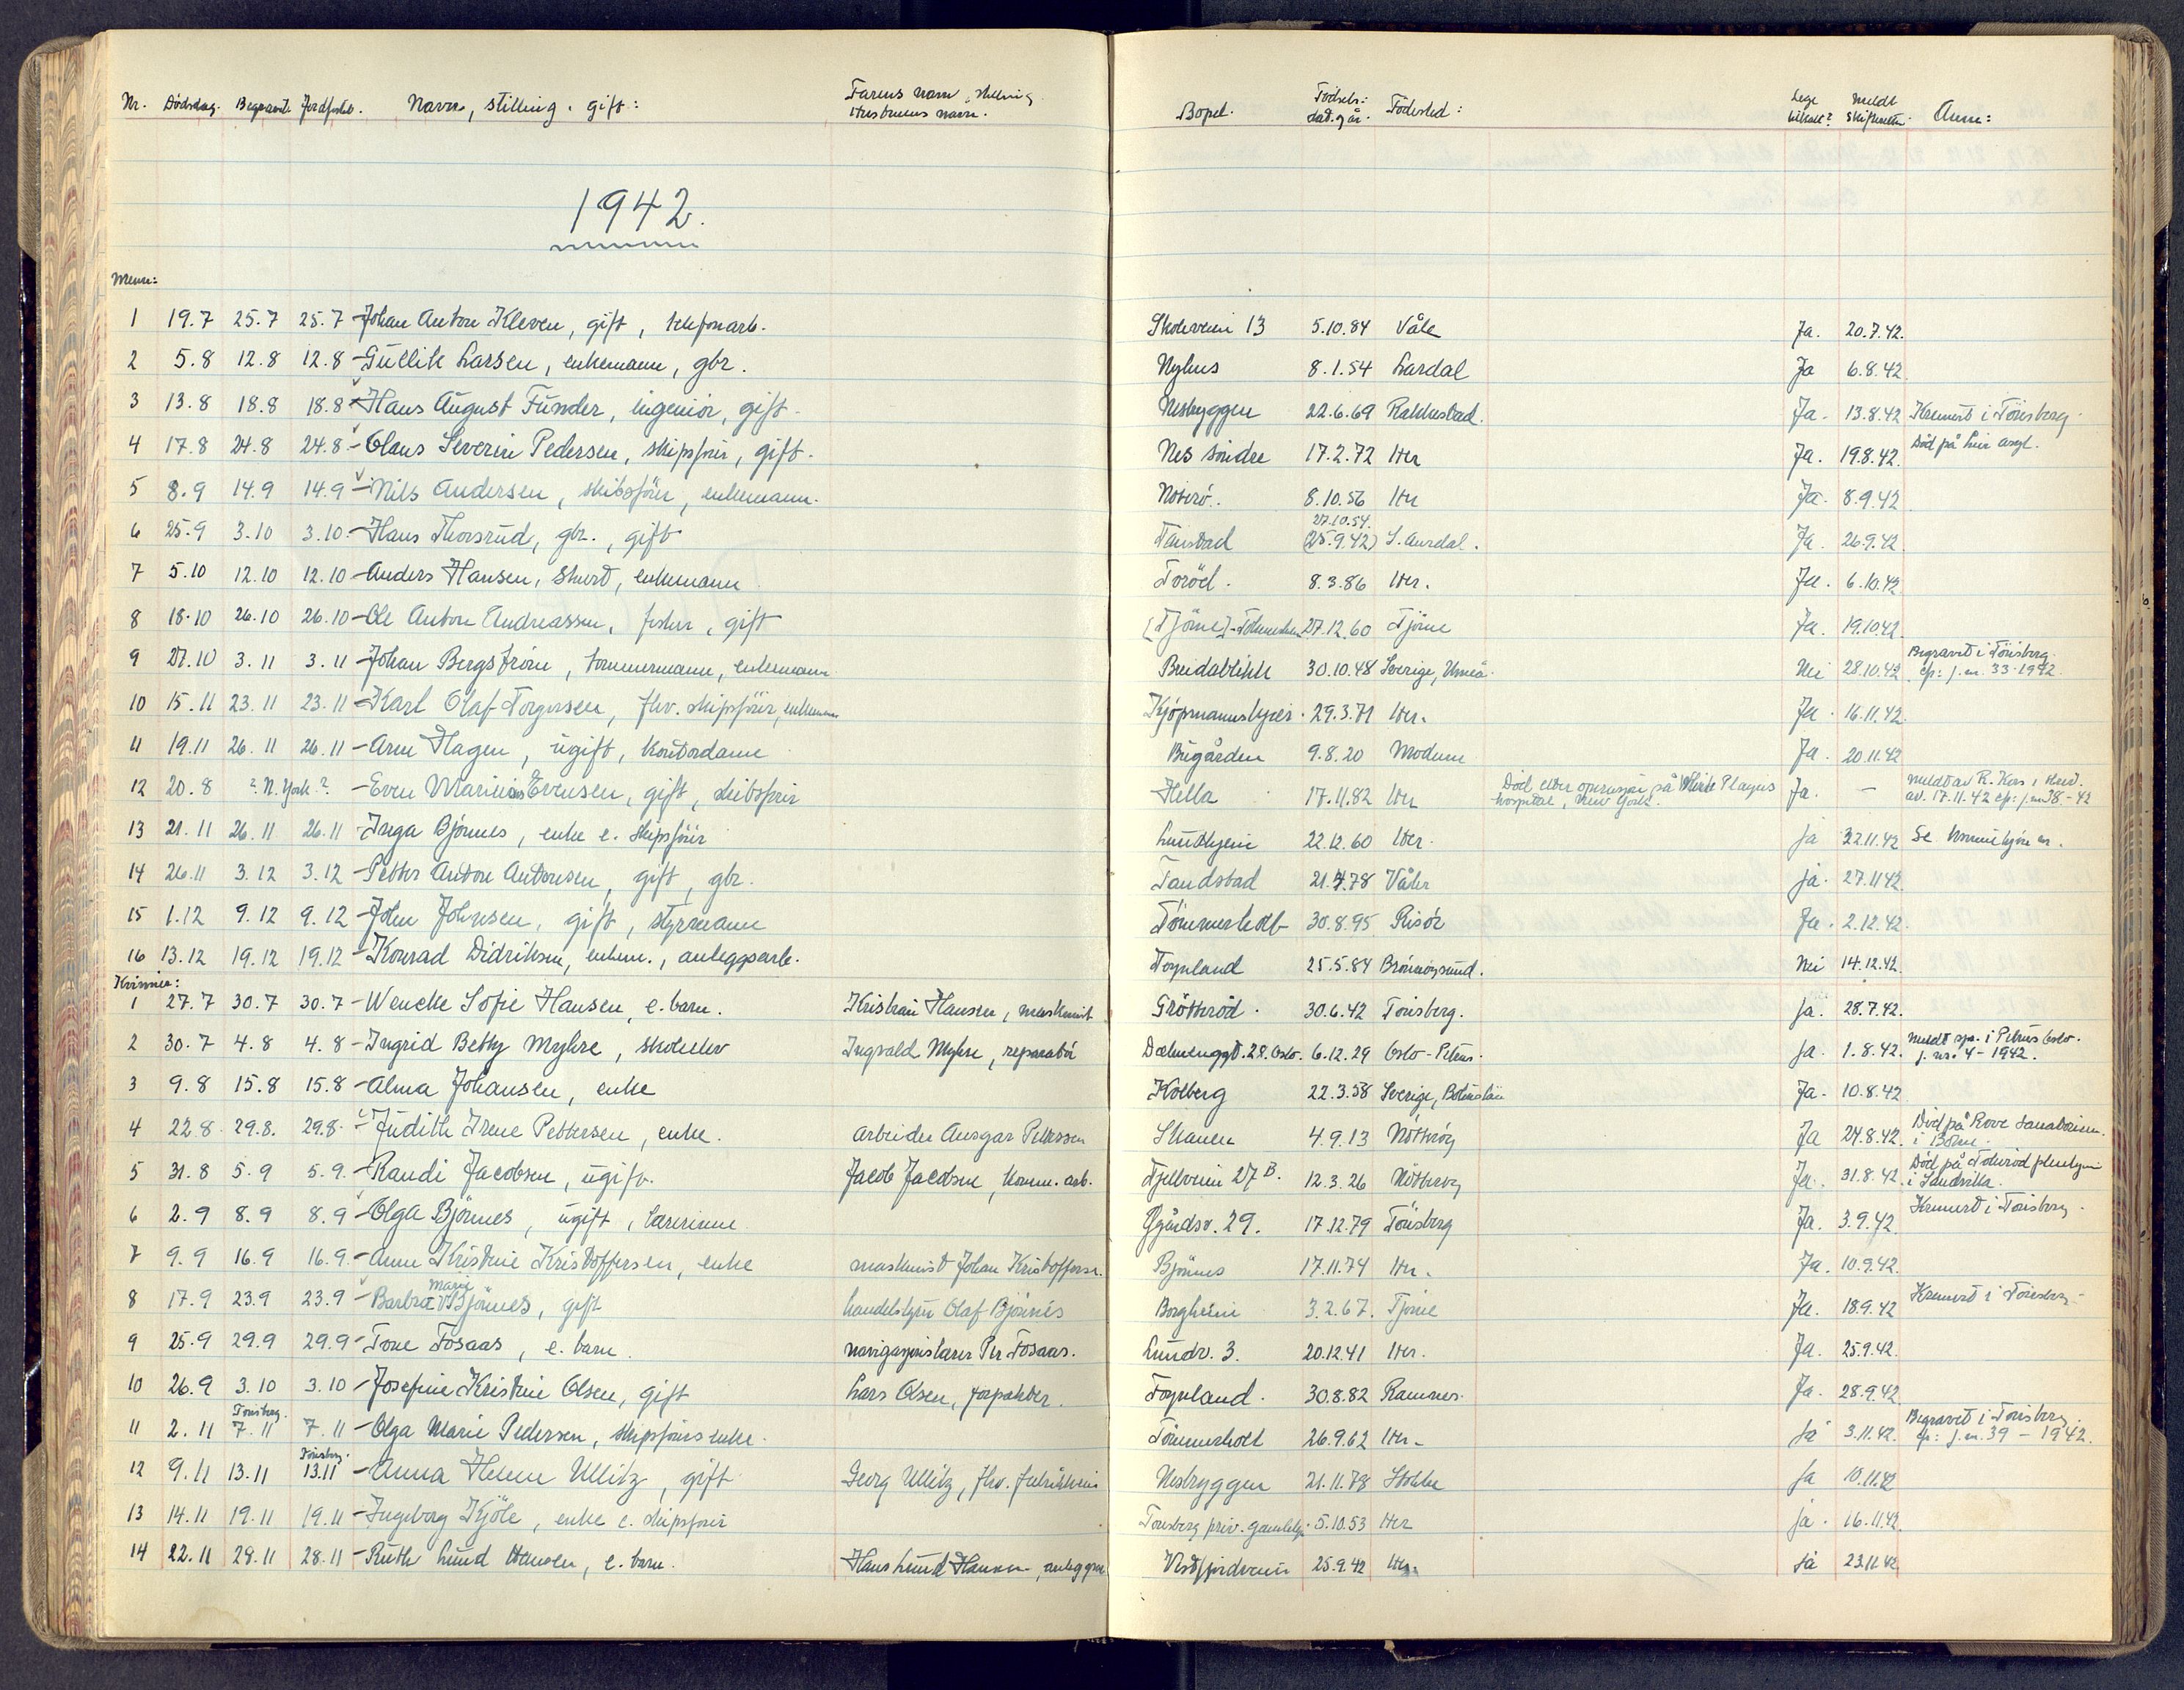 Nr. Dødsdag. Begravet. Jordfestet. Navn, stilling, gift: Farens navn, stilling Bopel. Fødsels: Fødested: Lege Meldt Anm:
Hustruens navn. dat. og år. tilkalt? skifteretten.
1942.
Menn:
1 19.7 25.7 25.7 - Johan Anton Kleven, gift, telefonarb. Skoleveien 13 5.10.84 Våle Ja. 20.7.42.
2 5.8 12.8 12.8 - Gullik Larsen, enkemann, gbr. Nyhus 8.1.54 Lardal Ja 6.8.42.
3 13.8 18.8 18.8 - Hans August Funder, ingeniør, gift. Nesbyggen 22.6.69 Rakkestad. Ja. 13.8.42 Kremert i Tönsberg.
4 17.8 24.8 24.8 - Olaus Severin Pedersen, skipsfører, gift. Nes söndre 17.2.72 Her Ja. 19.8.42. Død på Lier asyl.
5 8.9 14.9 14.9 - Nils Andersen, skibsfører, enkemann. 8.10.56 Her Ja. 8.9.42
6 25.9 3.10 3.10. - Hans Thorsrud, gbr., gift Tanstad 27.10.54. (25.9.42) S. Aurdal. Ja. 26.9.42.
7 5.10 12.10 12.10 - Anders Hansen, stuert, enkemann Toröd. 8.3.86 Her. Ja. 6.10.42.
8 18.10 26.10 26.10 - Ole Anton Andreassen, fisker, gift [Tjöme] - 27.12.60 Tjöme Ja. 19.10.42.
9 27.10 3.11 3.11 - Johan Bergström, tømmermann, enkemann Breidablikk 30.10.48 Sverige, Umeå. Nei 28.10.42 Begravet i Tönsberg.
cfr: j.nr. 33-1942.
10 15.11 23.11 23.11 - Karl Olaf Torgersen, fhv. skipsfører, enkemann 29.3.71 Her. Ja. 16.11.42.
11 19.11 26.11 26.11 - Arne Hagen, ugift, kontordame 9.8.20 Modum Ja. 20.11.42
12 20.8 ? N. York ? - Even Marinius Evensen, gift, skibsfører Hella 17.11.82 Her Død efter operasjon på White Plagns Ja. - Meldt av R. Kors i skriv.
hospital, New York. av. 17.11.42 cfr: j.nr 38-42
13 21.11 26.11 26.11 - Inga Bjönnes, enke e. skipsfører Lundheim 22.12.60 Her. ja 22.11.42 Se
14 26.11 3.12 3.12 - Petter Anton Antonsen, gift, gbr. Tandstad 21.4.78 Våler ja. 27.11.42.
15 1.12 9.12 9.12 - John Johnsen, gift, styrmann Tömmerholt 30.8.95 Risör Ja. 2.12.42.
16 13.12 19.12 19.12 - Konrad Didriksen, enkem., anleggsarb. Föynland 25.5.84 Brönnöysund. Nei 14.12.42.
Kvinner:
1 27.7 30.7 30.7 - Wenche Sofie Hansen, e. barn. Kristian Hansen, maskinist Grötteröd. 30.6.42 Tönsberg. ja. 28.7.42.
2 30.7 4.8 4.8 - Ingrid Betty Myhre, skoleelev Ingvald Myhre, reparatør Dælenenggt. 28. Oslo. 6.12.29 Oslo - Petrus. ja. 1.8.42. Meldt spr. i Petrus Oslo.
j. nr. 4 - 1942.
3 9.8 15.8 15.8 - Alma Johansen, enke Kolberg 22.3.58 Sverige, Ja. 10.8.42
4 22.8 29.8. 29.8. - Judith Irene Pettersen, enke. Arbeider Ansgar Pettersen Skauen 4.9.13 Nötteröy Ja 24.8.42. Död på Rove Sanatorium
5 31.8 5.9 5.9. - Randi Jacobsen, ugift. Jacob Jacobsen, komm. arb. Fjellveien 27 B. 12.3.26 Nötteröy Ja. 31.8.42. Död på pleiehjem
i Sandvika.
6 2.9 8.9 8.9 - Olga Bjönnes, ugift, lærerinne 29. 17.12.79 Tönsberg Ja. 3.9.42. Kremert i Tönsberg.
7 9.9 16.9 16.9. - Anne Kristine Kristoffersen, enke maskinist Johan Kristoffersen. Bjönnes 17.11.74 Her. Ja. 10.9.42.
8 17.9 23.9 23.9 - Barbra Marie Bjönnes, gift handelsbestyrer Olaf Bjönnes Borgheim 3.2.67. Tjöme Ja. 18.9.42 Kremert i Tönsberg.
9 25.9 29.9 29.9 - Tone Fosaas, e. barn. navigasjonslærer Per Fosaas. Lundv. 3. 20.12.41 Her. Ja. 25.9.42.
10 26.9 3.10 3.10 - Josefine Kristine Olsen, gift Lars Olsen, forpakter. Föynland. 30.8.82 Ramnes. Ja. 28.9.42
11 2.11 Tönsberg. 7.11 7.11 - Olga Marie Pedersen, skipsførers enke. Tömmerholt 26.9.62 Her. Ja 3.11.42. Begravet i Tönsberg
cfr: j.nr. 39 - 1942.
12 9.11 13.11 Tönsberg. 13.11 - Anna Helene Ullitz, gift Georg Ullitz, fhv. Nesbryggen 21.11.78 Stokke Ja 10.11.42
13 14.11 19.11 19.11 - Ingeborg Kjöle, enke e. skipsfører Tönsberg priv. gamlehj. 5.10.53 Her ja. 16.11.42.
14 22.11 28.11 28.11 - Ruth Lund Hansen, e. barn. Hans Lund Hansen, Vestfjordveien 25.9.42 Her. Ja 23.11.42